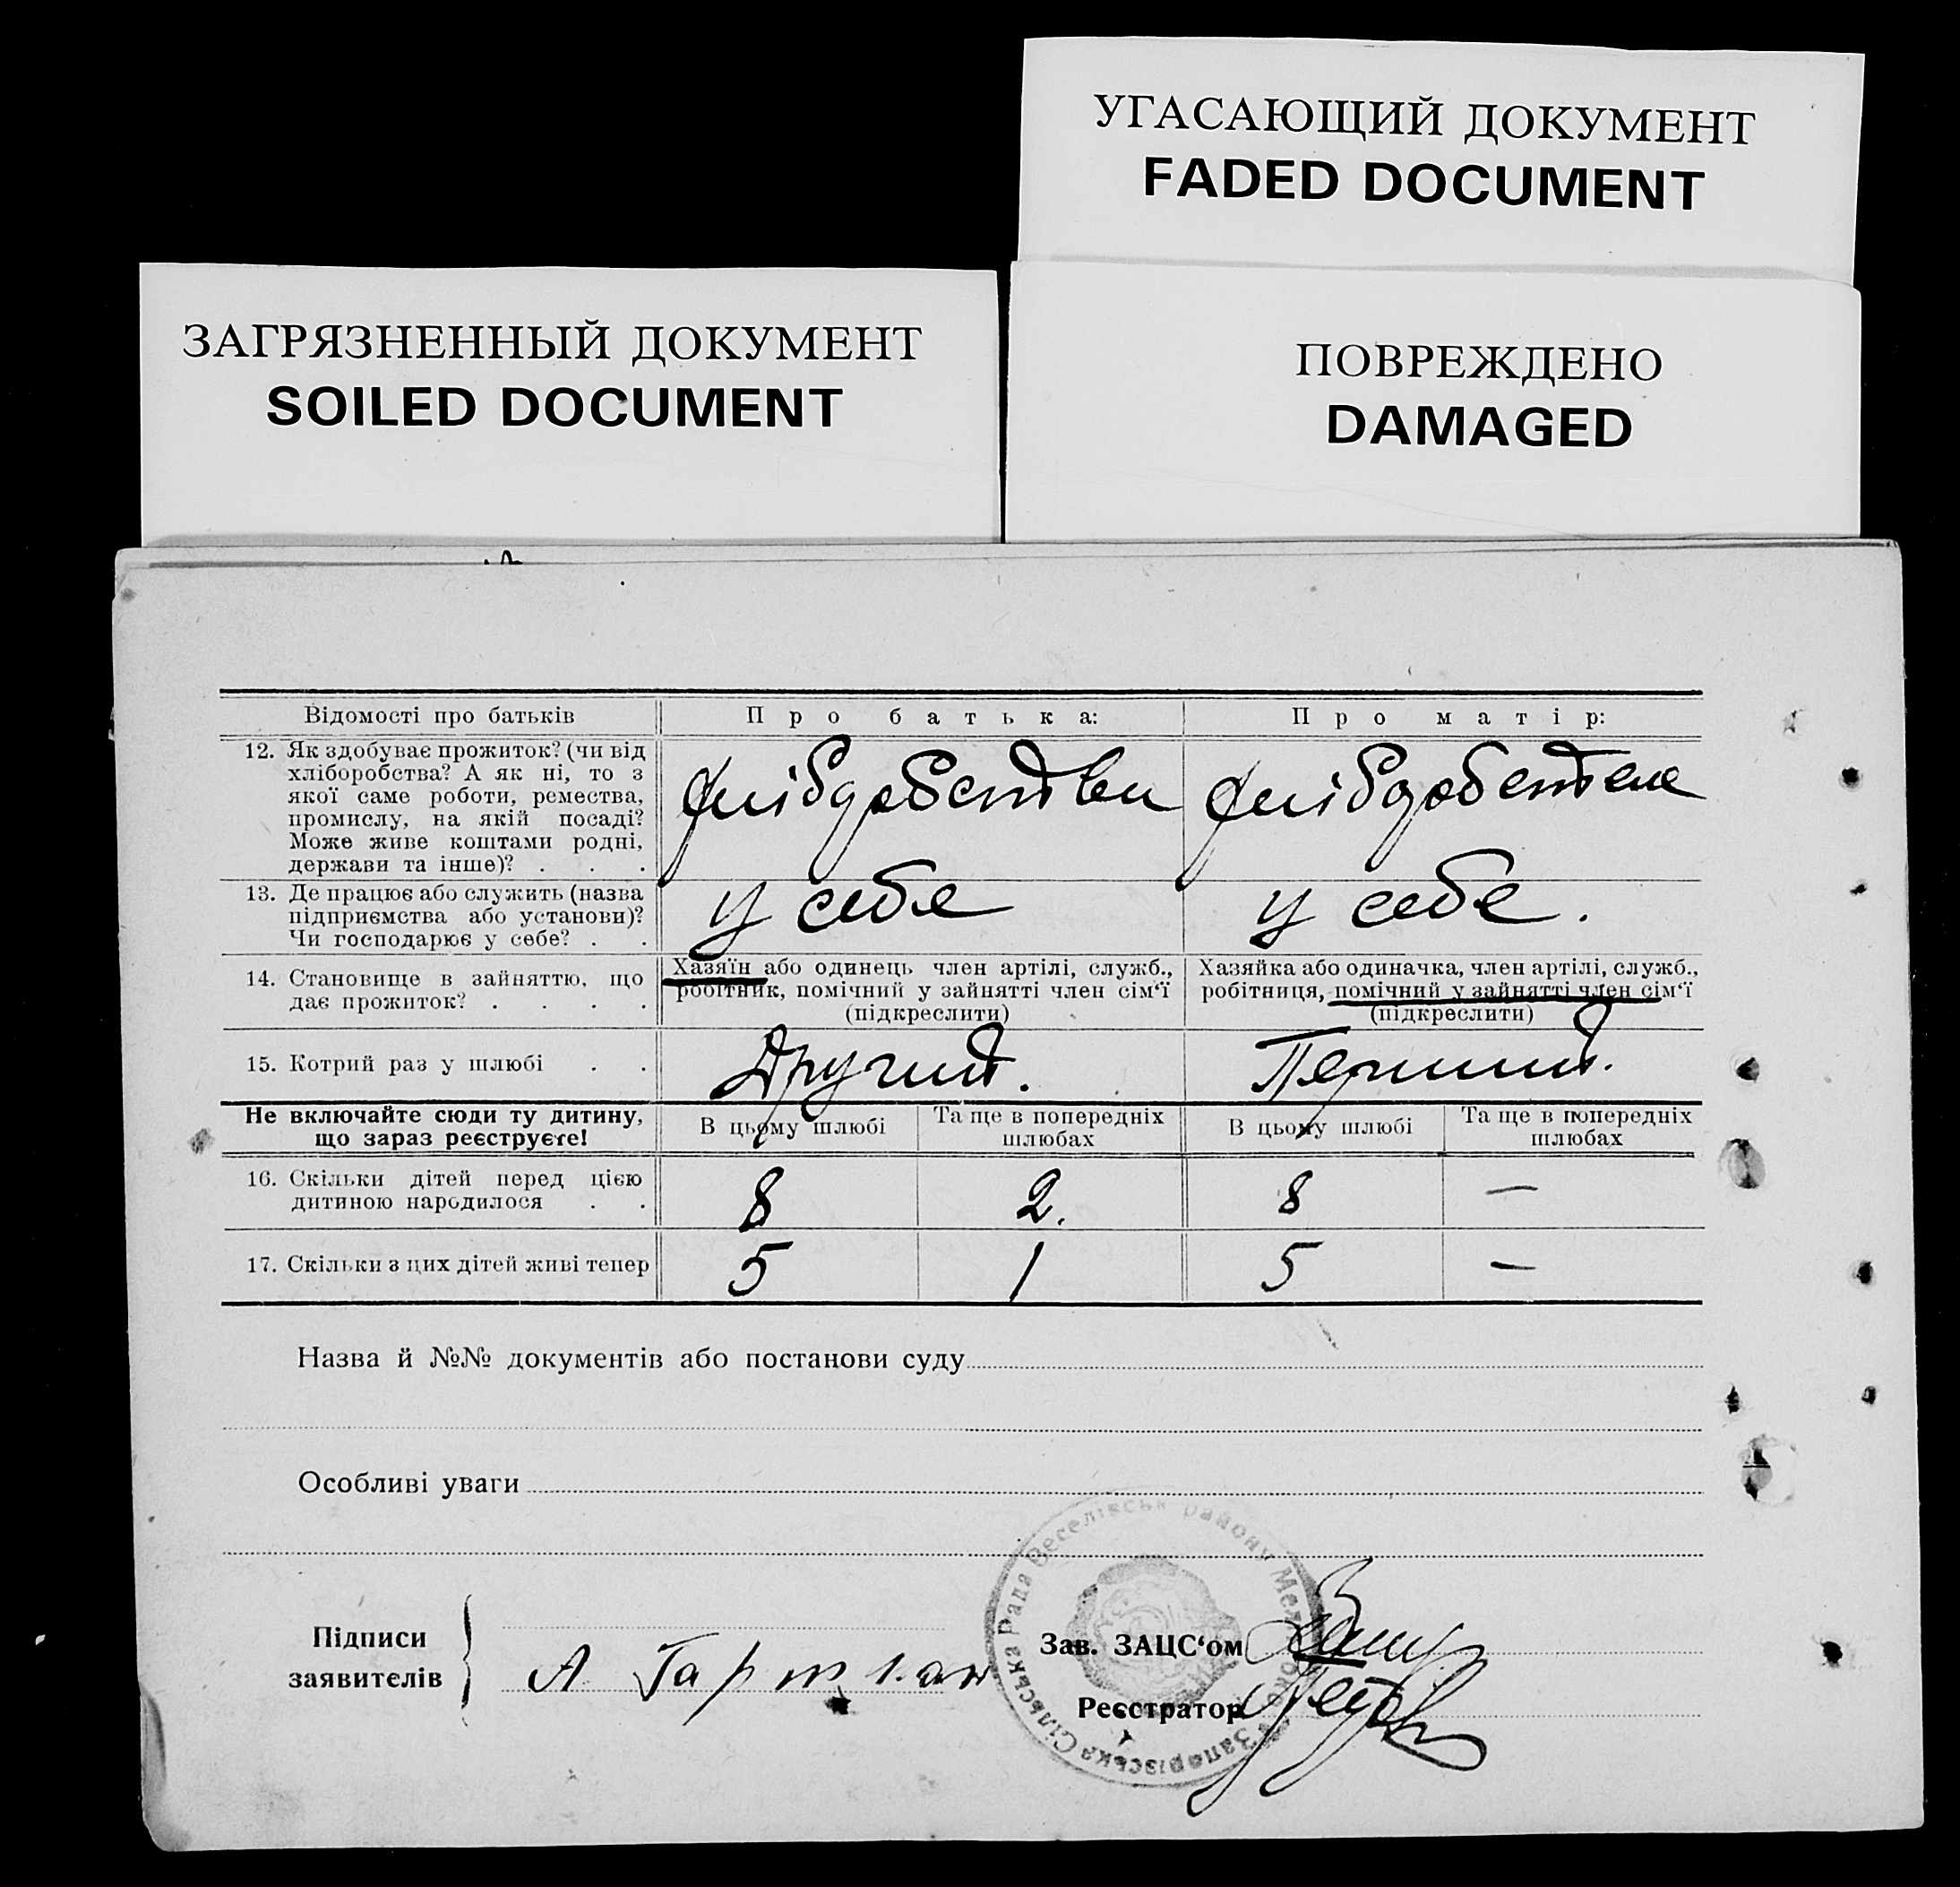 УГАСАЮЩИЙ ДОКУМЕНТ
FADED DOCUMENT
ЗАГРЯЗНЕННЫЙ ДОКУМЕНТ
SOILED DOCUMENT
ПОВРЕЖДЕНО
DAMAGED
Відомості про батьків
Про батька:
Про матір:
12. Як здобуває прожиток? (чи від
хліборобства? А як ні, то з
якої саме роботи, ремества,
промислу, на якій посаді?
Може живе коштами родні,
держави та інше)? . . .
13. Де працює або служить (назва
підприємства або установи)?
Чи господарює у себе? . .
у себе
у себе.
14. Становище в зайняттю, що
дає прожиток? . . . .
Хазяїн або одинець член артілі, служб.,
робітник, помічний у зайнятті член сім‘ї
(підкреслити)
Хазяйка або одиначка, член артілі, служб.,
робітниця, помічний у зайнятті член сім‘ї
(підкреслити)
15. Котрий раз у шлюбі . .
Другий.
Перший.
Не включайте сюди ту дитину,
що зараз реєструєте!
В цьому шлюбі
Та ще в попередніх
шлюбах
В цьому шлюбі
Та ще в попередніх
шлюбах
16. Скільки дітей перед цією
дитиною народилося . .
8
2.
8
—
17. Скільки з цих дітей живі тепер
5
1
5
—
Назва й №№ документів або постанови суду
Особливі уваги
Підписи
заявителів
А
Зав. ЗАЦС‘ом
Реєстратор
Сільська Рада Веселівськ району